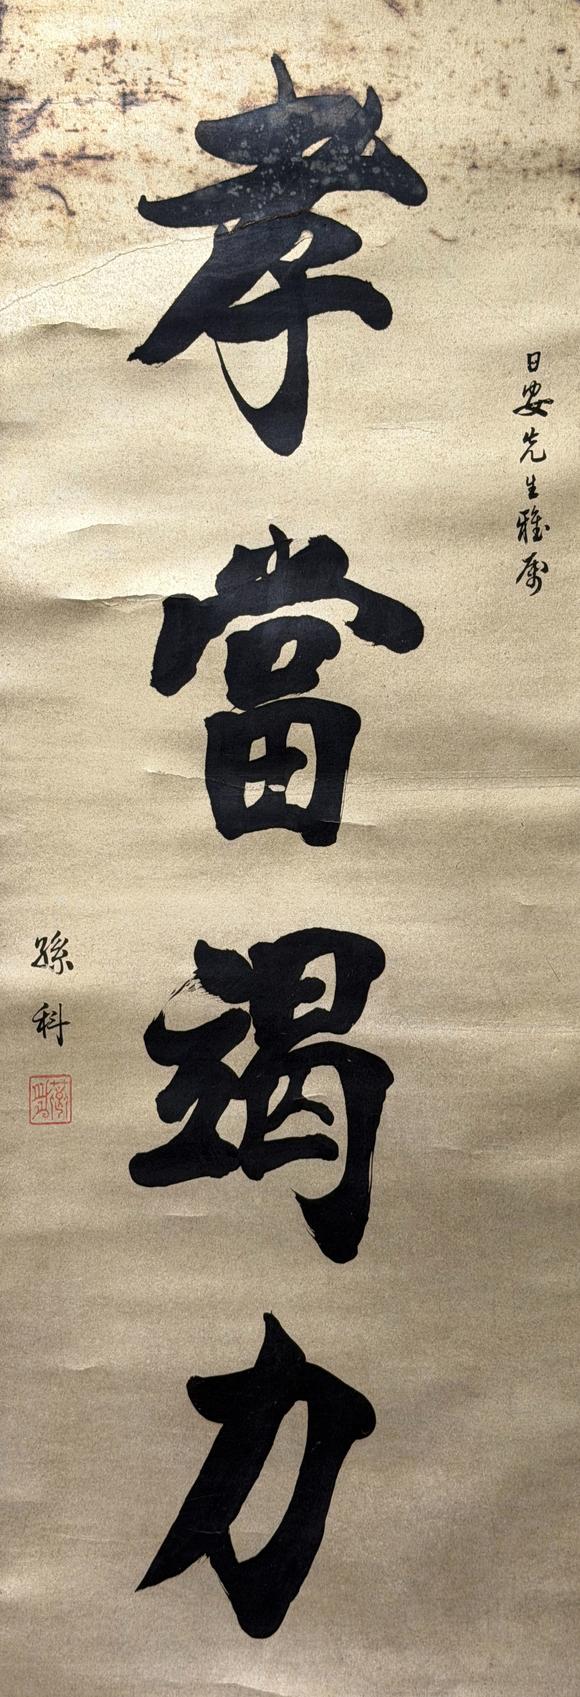 日晏先生雅属
孝當竭力
孫科